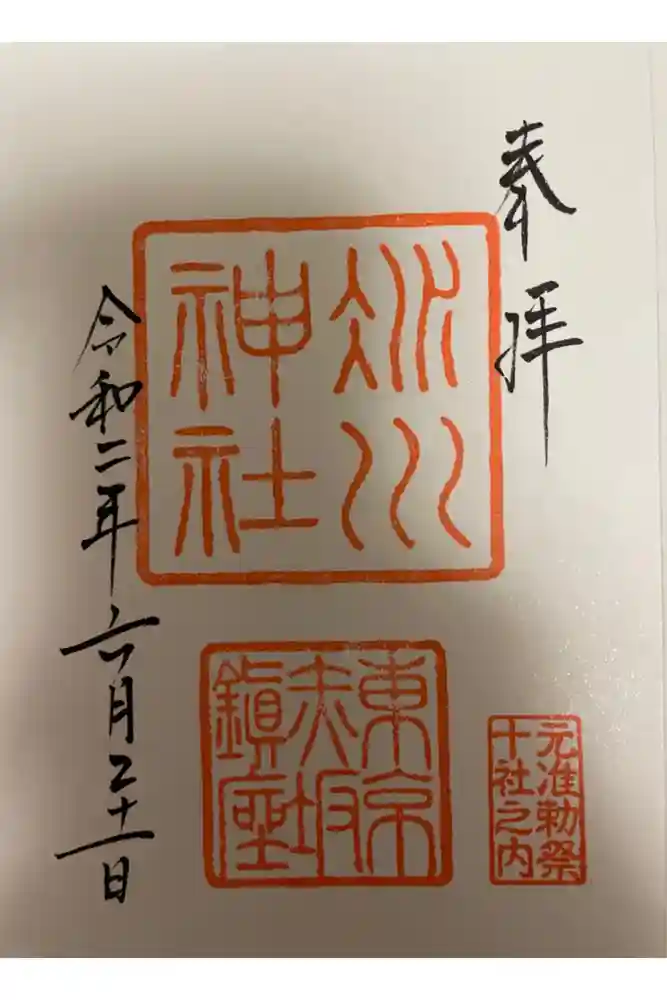 奉拝
冰川
神社
東京
赤坂
鎭座
元准勅祭
十社之内
令和二年六月二十一日